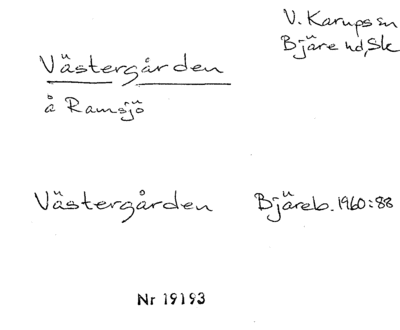 V. Karups sn
Bjäre hd, Sk
Västergården
å Ramsjö
Västergården Bjäreb. 1960:88
Nr 19193